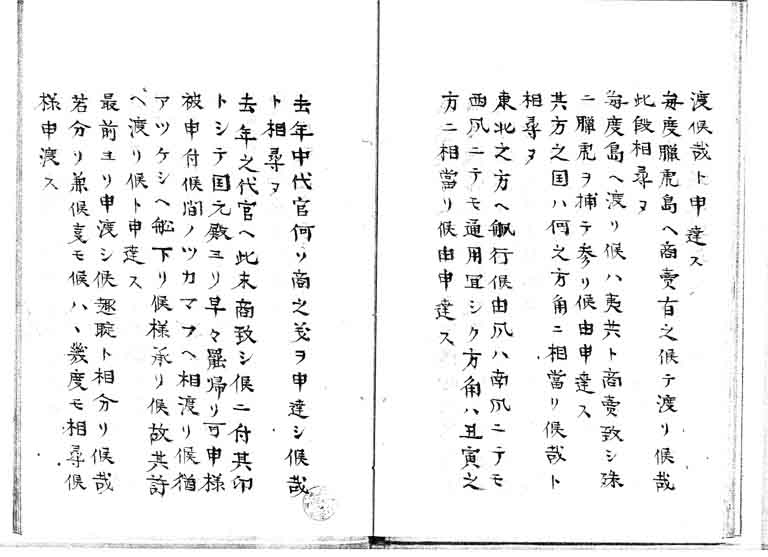 渡候哉ト申達ス
毎度臘虎島ヘ商賣有之候テ渡リ候哉
此段相尋ヌ
毎度島ヘ渡リ候ハ夷共ト商賣致シ殊
ニ臘虎ヲ捕テ参リ候由申達ス
其方之国ハ何之方角ニ相當リ候哉ト
相尋ヌ
東北之方ヘ舩行候由凨ハ南凨ニテモ
西凨ニテモ通用冝シク方角ハ丑寅之
方ニ相當リ候由申達ス
去年中代官何リ商之義ヲ申達シ候哉
ト相尋ヌ
去年之代官ヘ此末商致シ候ニ付其印
トシテ国元殿ヨリ早々罷帰リ可申様
被申付候間ノツカマフヘ相渡リ候猶
アツケシヘ舩下リ候様承リ候故其許
ヘ渡リ候ト申達ス
最前ヨリ申渡シ候趣聢ト相分リ候哉
若分リ兼候㕝モ候ハヽ幾度モ相尋候
様申渡ス